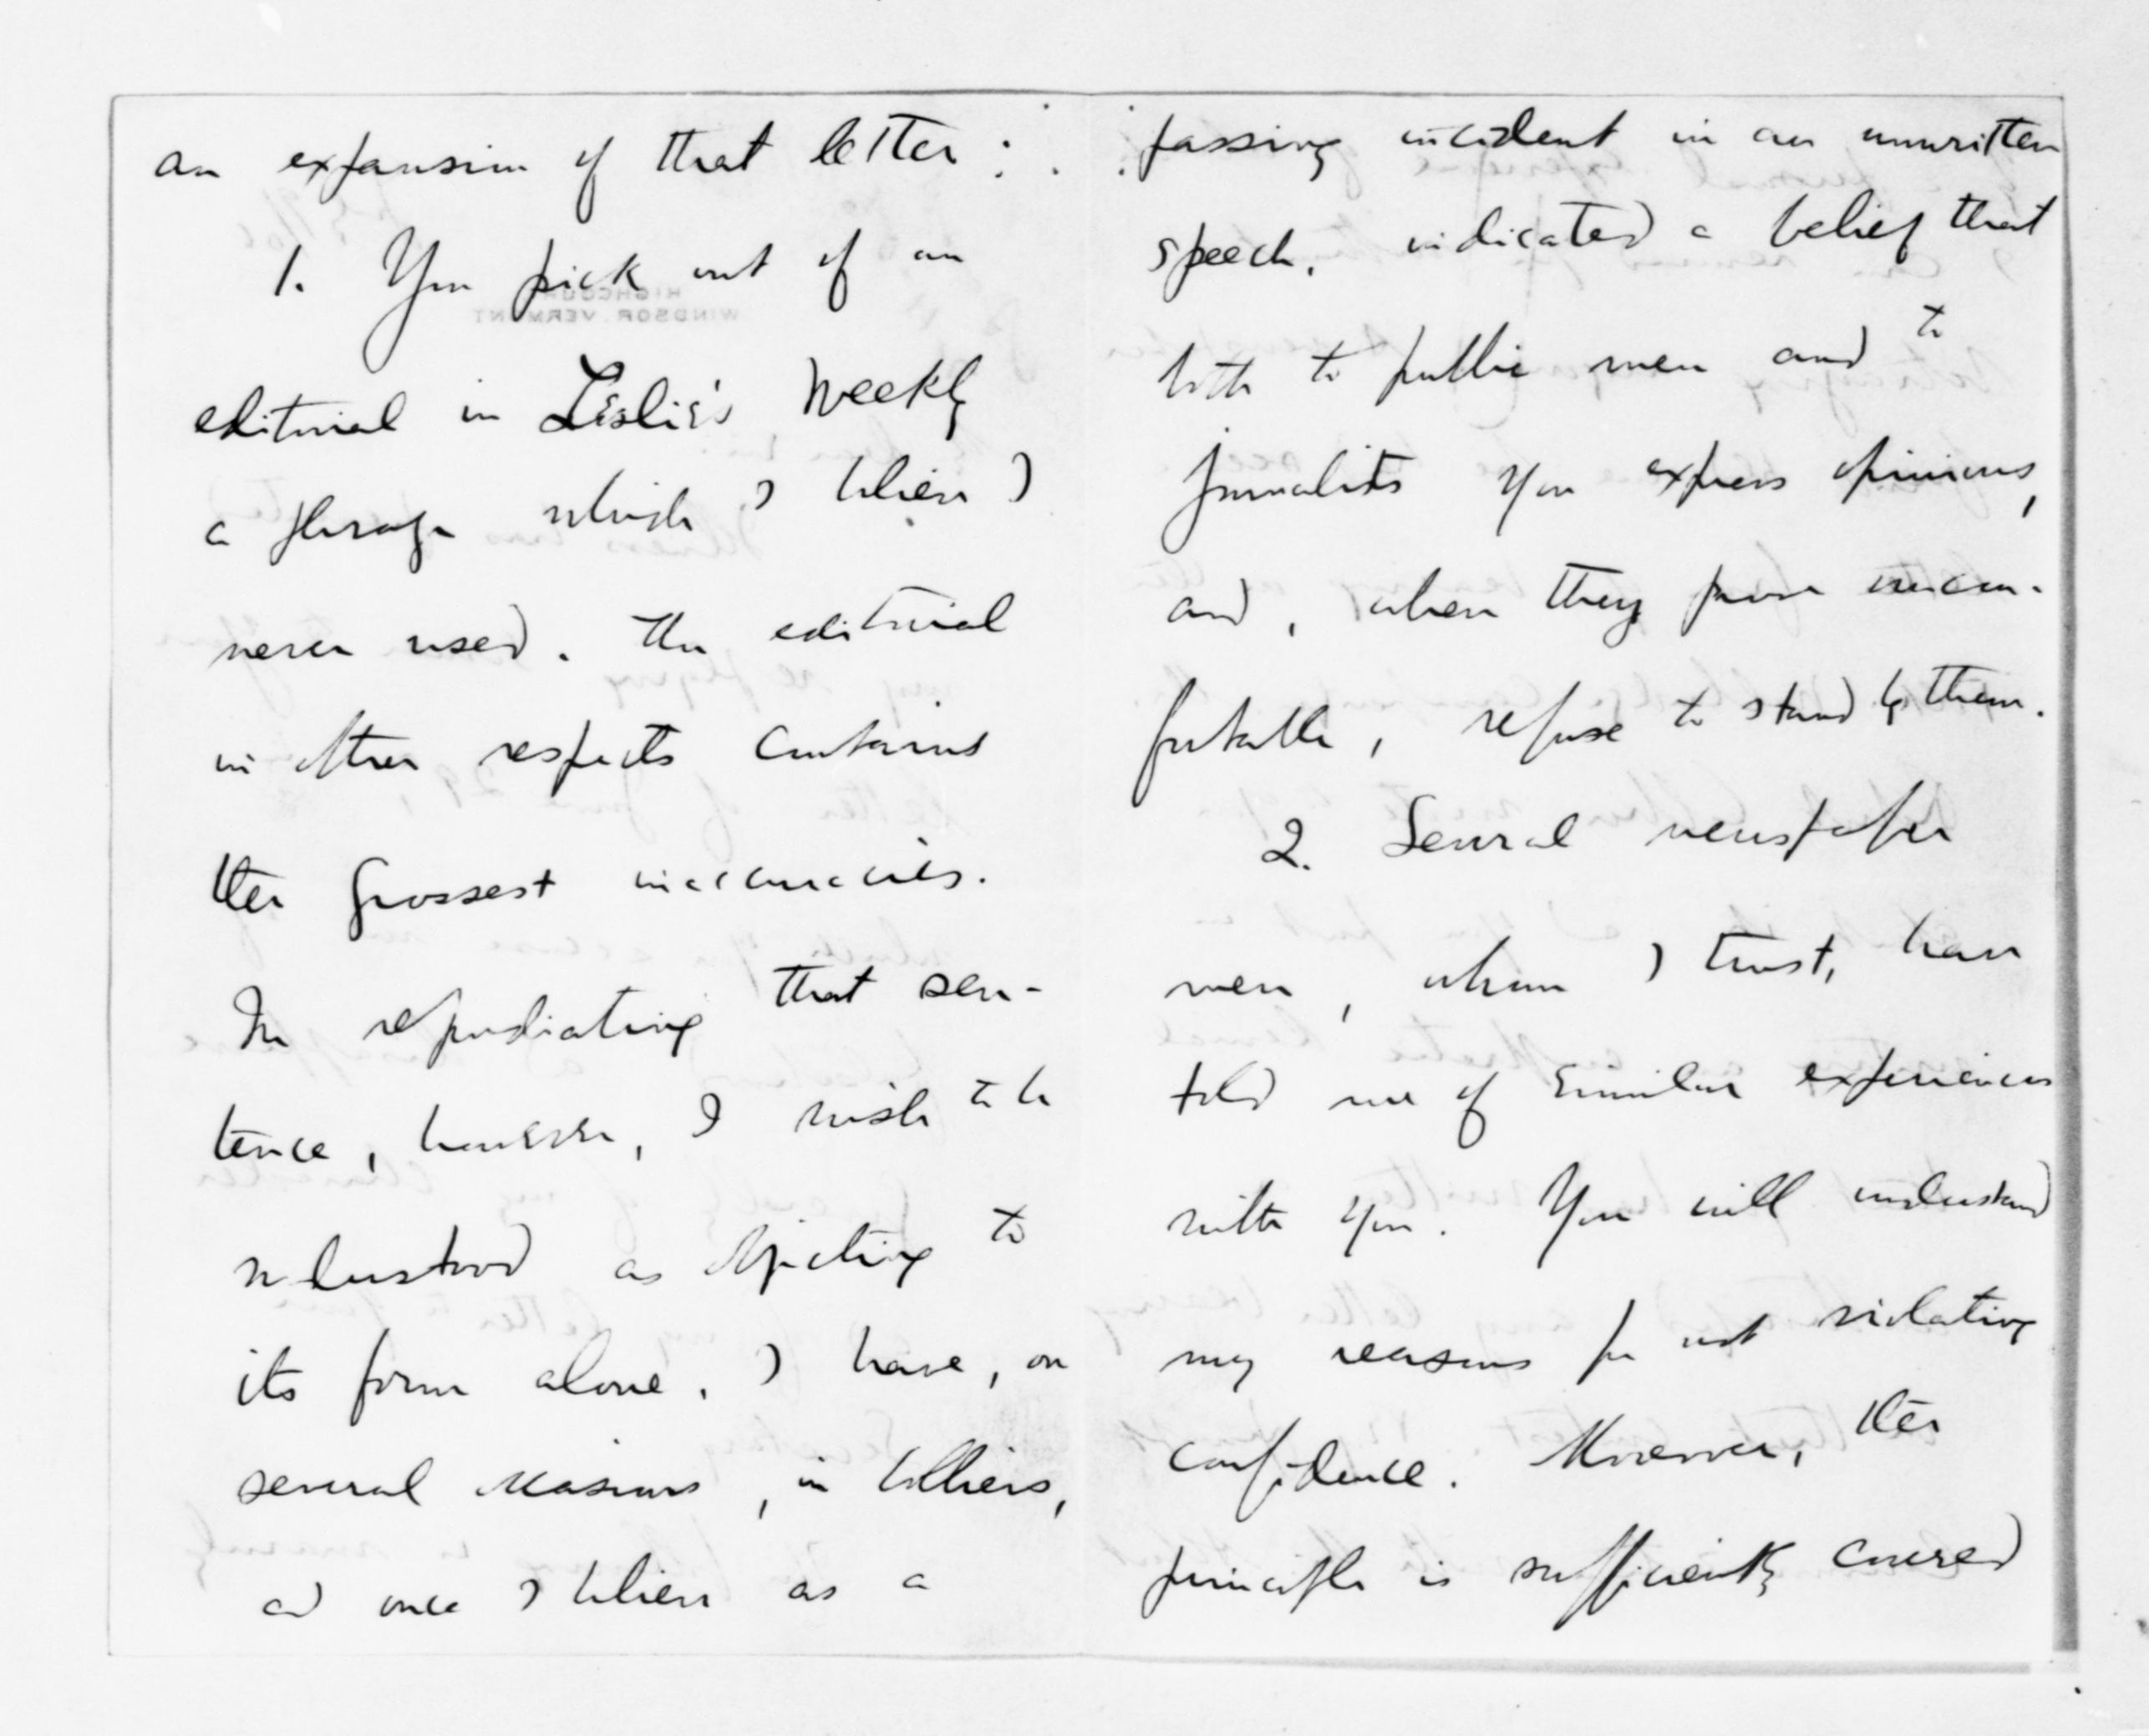 an expansion of that letter :
1. You pick out of an
editorial in Leslie's Weekly
a phrase which I believe I
never used. The editorial
in other respects contains
the grossest inaccuracies.
In repudiating that sen-
tence, however, I wish to be
understood as objecting to
its form alone. I have, on
several occasions, in Collier's,
and once I believe as a
passing incident in an unwritten
speech, indicated a belief that
both to public men and to
journalists you express opinions,
and, when they prove uncom-
fortable, refuse to stand by them.
2. Several newspaper
men, whom I trust, have
told me of similar experiences
with you. You will understand
my reasons for not violating
confidence. Moreover, the
principle is sufficiently covered